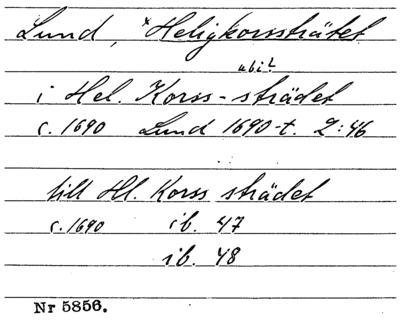 Lund, ×Heligkorssträtet
ubi!
i Hel. Korss-strädet
c. 1690 Lund 1690-t. 2:46
till Hl. Korss strädet
c. 1690 ib. 47
ib. 48
Nr 5856.